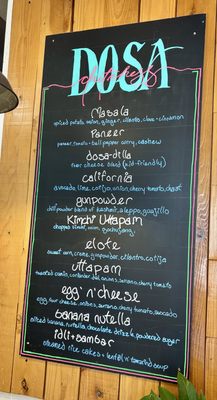 DOSA
Masala
spiced potato, onion, ginger, cilantro, clove-cinnamon
Paneer
paneer, tomato-bell pepper curry, cashew
dosa-dilla
four cheese blend (kid-friendly)
california
avocado, lime, cotija, onion, cherry tomato, chaat
gunpowder
chili powder blend of kashmiri, aleppo, guajillo
Kimchi Uttapam
chopped kimchi, onion, gochujang
elote
sweet corn, crema, gunpowder, cilantro, cotija
Uttapam
toasted cumin, coriander, onions, cherry tomato
egg 'n' cheese
egg, four cheese, onions, cherry tomato, avocado
banana nutella
sliced banana, nutella, chocolate drizzle, powdered sugar
idli + sambar
steamed rice cakes + lentil 'n' tamarind soup